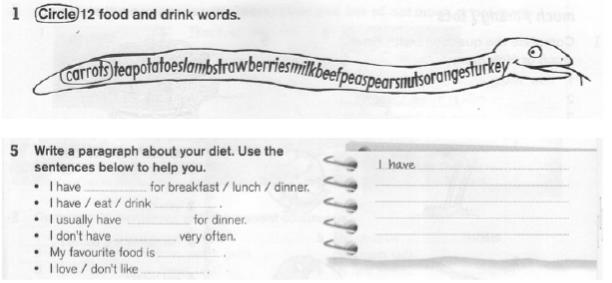 1 Circle 12 food and drink words.
carrotsteapotatoeslambstrawberriesmilkbeefpeaspearsnutsorangesturkey
5 Write a paragraph about your diet. Use the
sentences below to help you.
• I have ________ for breakfast / lunch / dinner.
• I have / eat / drink ________ .
• I usually have ________ for dinner.
• I don't have ________ very often.
• My favourite food is ________ .
• I love / don't like ________ .
I have